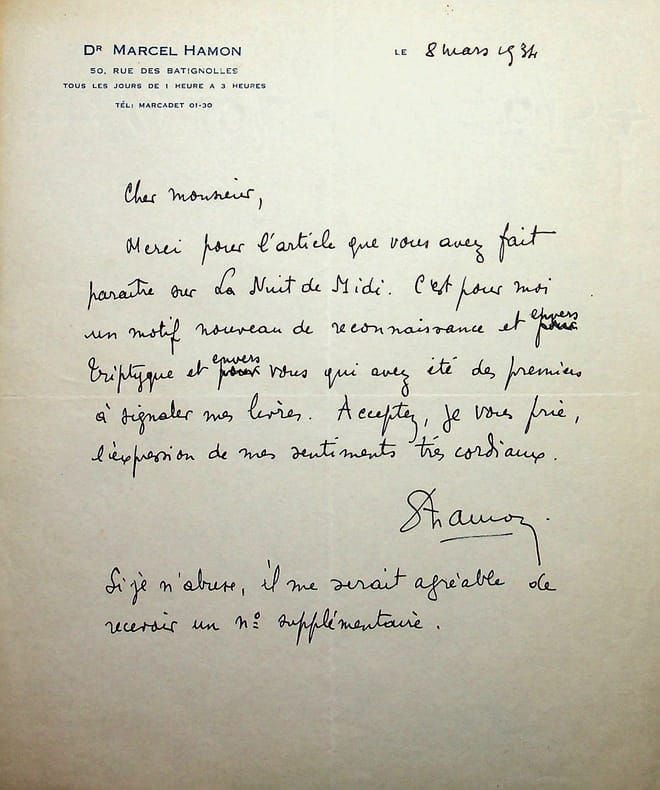 DR MARCEL HAMON
50, RUE DES BATIGNOLLES
TOUS LES JOURS DE 1 HEURE A 3 HEURES
TÉL: MARCADET 01-30
LE 8 mars 1934
Cher monsieur,
Merci pour l'article que vous avez fait
paraître sur La Nuit de Midi. C'est pour moi
un motif nouveau de reconnaissance et pour envers
Triptyque et pour envers vous qui avez été des premiers
à signaler mes livres. Acceptez, je vous prie,
l'expression de mes sentiments très cordiaux.
Hamon.
Si je n'abuse, il me serait agréable de
recevoir un nº supplémentaire.